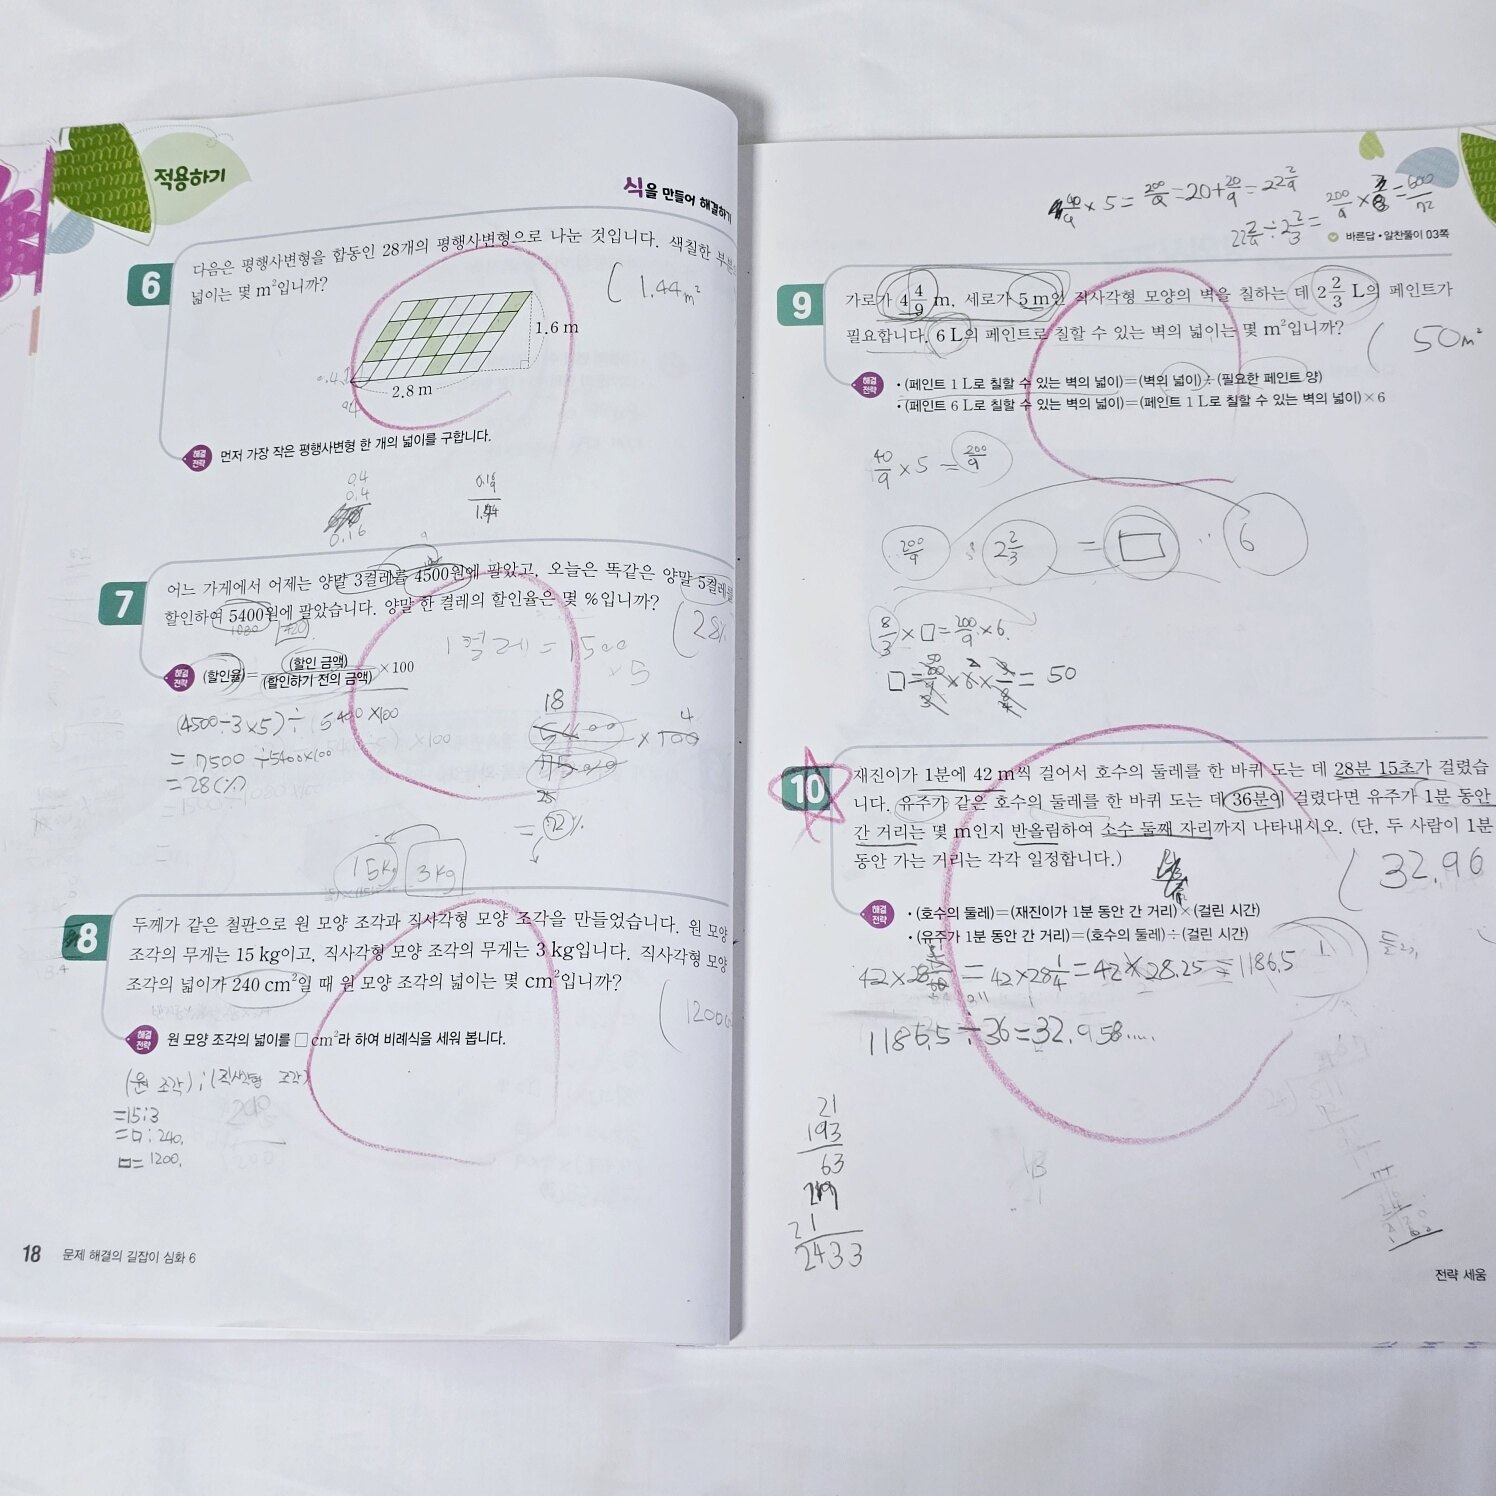 적용하기
식을 만들어 해결하기
6
다음은 평행사변형을 합동인 28개의 평행사변형으로 나눈 것입니다. 색칠한 부분의
넓이는 몇 m²입니까?
( 1.44m²
1.6 m
2.8 m
해결 전략
먼저 가장 작은 평행사변형 한 개의 넓이를 구합니다.
0.4
0.4
0.16
0.16
9
1.44
7
어느 가게에서 어제는 양말 3켤레를 4500원에 팔았고, 오늘은 똑같은 양말 5켤레를
할인하여 5400원에 팔았습니다. 양말 한 켤레의 할인율은 몇 %입니까?
( 28%
1켤레 = 1500
×5
해결 전략
(할인율)=(할인 금액)/(할인하기 전의 금액)×100
(4500÷3×5)÷(5400×100
= 7500 ÷5400×100
= 28(%)
18
5400
7500
×100
4
25
= 72%
15kg 3kg
8
두께가 같은 철판으로 원 모양 조각과 직사각형 모양 조각을 만들었습니다. 원 모양
조각의 무게는 15 kg이고, 직사각형 모양 조각의 무게는 3 kg입니다. 직사각형 모양
조각의 넓이가 240 cm²일 때 원 모양 조각의 넓이는 몇 cm²입니까?
( 1200
해결 전략
원 모양 조각의 넓이를 □ cm²라 하여 비례식을 세워 봅니다.
(원 조각) : (직사각형 조각)
=15:3
=□:240,
□=1200,
18 문제 해결의 길잡이 심화 6
40/9 × 5 = 200/9 = 20+20/9 = 22 2/9
22 2/9 ÷ 2 2/3 = 200/9 × 3/8 = 600/72
바른답 • 알찬풀이 03쪽
9
가로가 4 4/9 m, 세로가 5 m인 직사각형 모양의 벽을 칠하는 데 2 2/3 L의 페인트가
필요합니다. 6 L의 페인트로 칠할 수 있는 벽의 넓이는 몇 m²입니까?
( 50m²
해결 전략
• (페인트 1 L로 칠할 수 있는 벽의 넓이)=(벽의 넓이)÷(필요한 페인트 양)
• (페인트 6 L로 칠할 수 있는 벽의 넓이)=(페인트 1 L로 칠할 수 있는 벽의 넓이)×6
40/9 × 5 = 200/9
200/9 : 2 2/3 = □ : 6
8/3 × □ = 200/9 × 6.
□ = 200/9 × 6 × 3/8 = 50
10
재진이가 1분에 42 m씩 걸어서 호수의 둘레를 한 바퀴 도는 데 28분 15초가 걸렸습
니다. 유주가 같은 호수의 둘레를 한 바퀴 도는 데 36분에 걸렸다면 유주가 1분 동안
간 거리는 몇 m인지 반올림하여 소수 둘째 자리까지 나타내시오. (단, 두 사람이 1분
동안 가는 거리는 각각 일정합니다.)
( 32.96
해결 전략
• (호수의 둘레)=(재진이가 1분 동안 간 거리)×(걸린 시간)
• (유주가 1분 동안 간 거리)=(호수의 둘레)÷(걸린 시간)
42×28 15/60 = 42×28 1/4 = 42×28.25 = 1186.5
1186.5 ÷ 36 = 32.958.....
21
193
63
21
2433
전략 세움